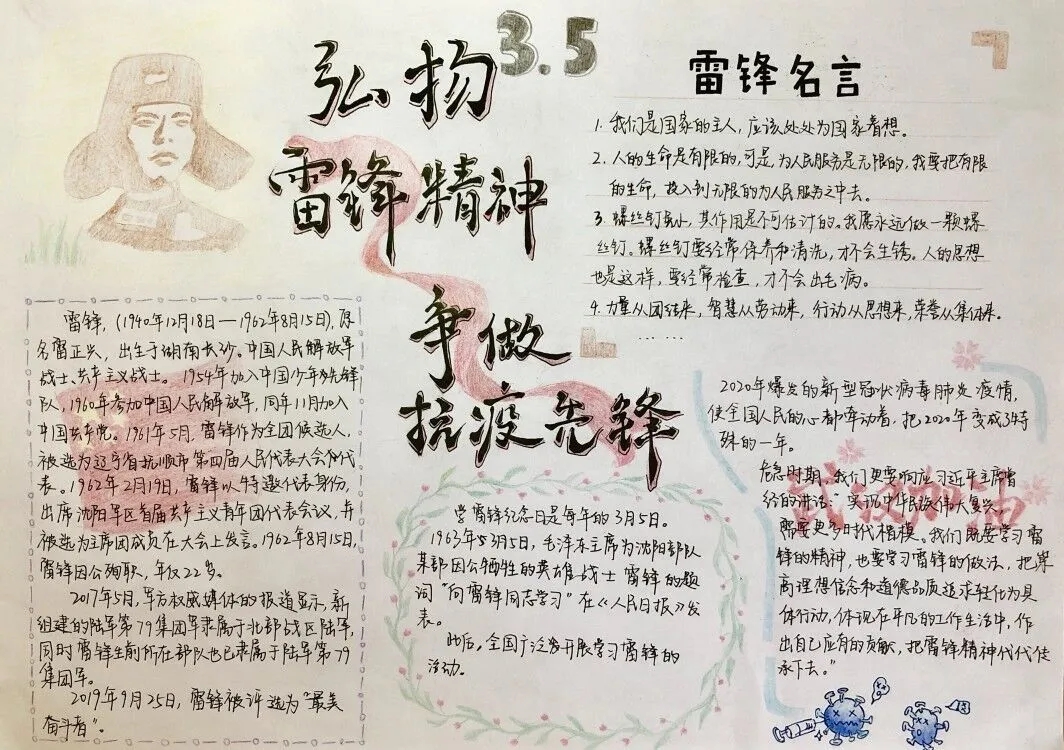 3.5
弘扬
雷锋精神
争做
抗疫先锋
雷锋名言
1. 我们是国家的主人，应该处处为国家着想。
2. 人的生命是有限的，可是，为人民服务是无限的，我要把有限
的生命，投入到无限的为人民服务之中去。
3. 螺丝钉虽小，其作用是不可估计的。我愿永远做一颗螺
丝钉。螺丝钉要经常保养和清洗，才不会生锈。人的思想
也是这样，要经常检查，才不会出毛病。
4. 力量从团结来，智慧从劳动来，行动从思想来，荣誉从集体来。
……
雷锋，(1940年12月18日—1962年8月15日)，原
名雷正兴，出生于湖南长沙。中国人民解放军
战士、共产主义战士。1954年加入中国少年先锋
队，1960年参加中国人民解放军，同年11月加入
中国共产党。1961年5月，雷锋作为全团候选人，
被选为辽宁省抚顺市第四届人民代表大会代
表。1962年2月19日，雷锋以特邀代表身份，
出席沈阳军区首届共产主义青年团代表会议，并
被选为主席团成员在大会上发言。1962年8月15日，
雷锋因公殉职，年仅22岁。
2017年5月，军方权威媒体的报道显示，新
组建的陆军第79集团军隶属于北部战区陆军，
同时雷锋生前所在部队也已隶属于陆军第79
集团军。
2019年9月25日，雷锋被评选为“最美
奋斗者”。
学雷锋纪念日是每年的3月5日。
1963年3月5日，毛泽东主席为沈阳部队
某部因公牺牲的英雄战士雷锋的题
词“向雷锋同志学习”在《人民日报》发
表。
此后，全国广泛发开展学习雷锋的
活动。
2020年爆发的新型冠状病毒肺炎疫情，
使全国人民的心都牵动着，把2020年变成了特
殊的一年。
武汉加油
危急时期，我们更要响应习近平主席曾
经的讲话：“实现中华民族伟大复兴，
需要更多时代楷模。我们既要学习雷
锋的精神，也要学习雷锋的做法，把崇
高理想信念和道德品质追求转化为具
体行动，体现在平凡的工作生活中，作
出自己应有的贡献，把雷锋精神代代传
承下去。”